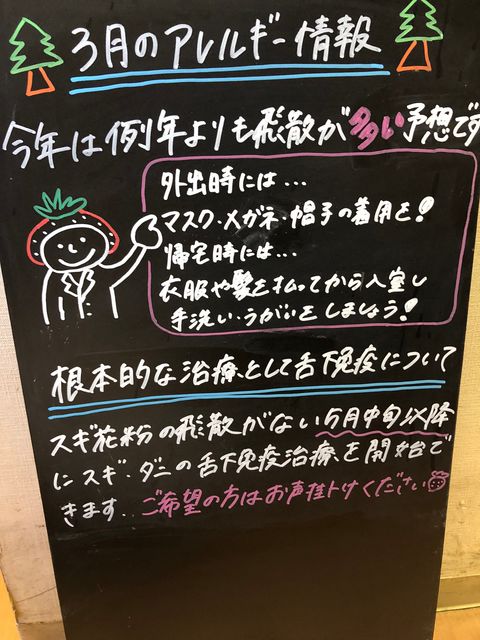 3月のアレルギー情報
今年は例年よりも飛散が多い予想です
外出時には...
マスク・メガネ・帽子の着用を!
帰宅時には...
衣服や髪を払ってから入室し
手洗い・うがいをしましょう!
根本的な治療として舌下免疫について
スギ花粉の飛散がない5月中旬以降
にスギ・ダニの舌下免疫治療を開始で
きます...ご希望の方はお声掛けください